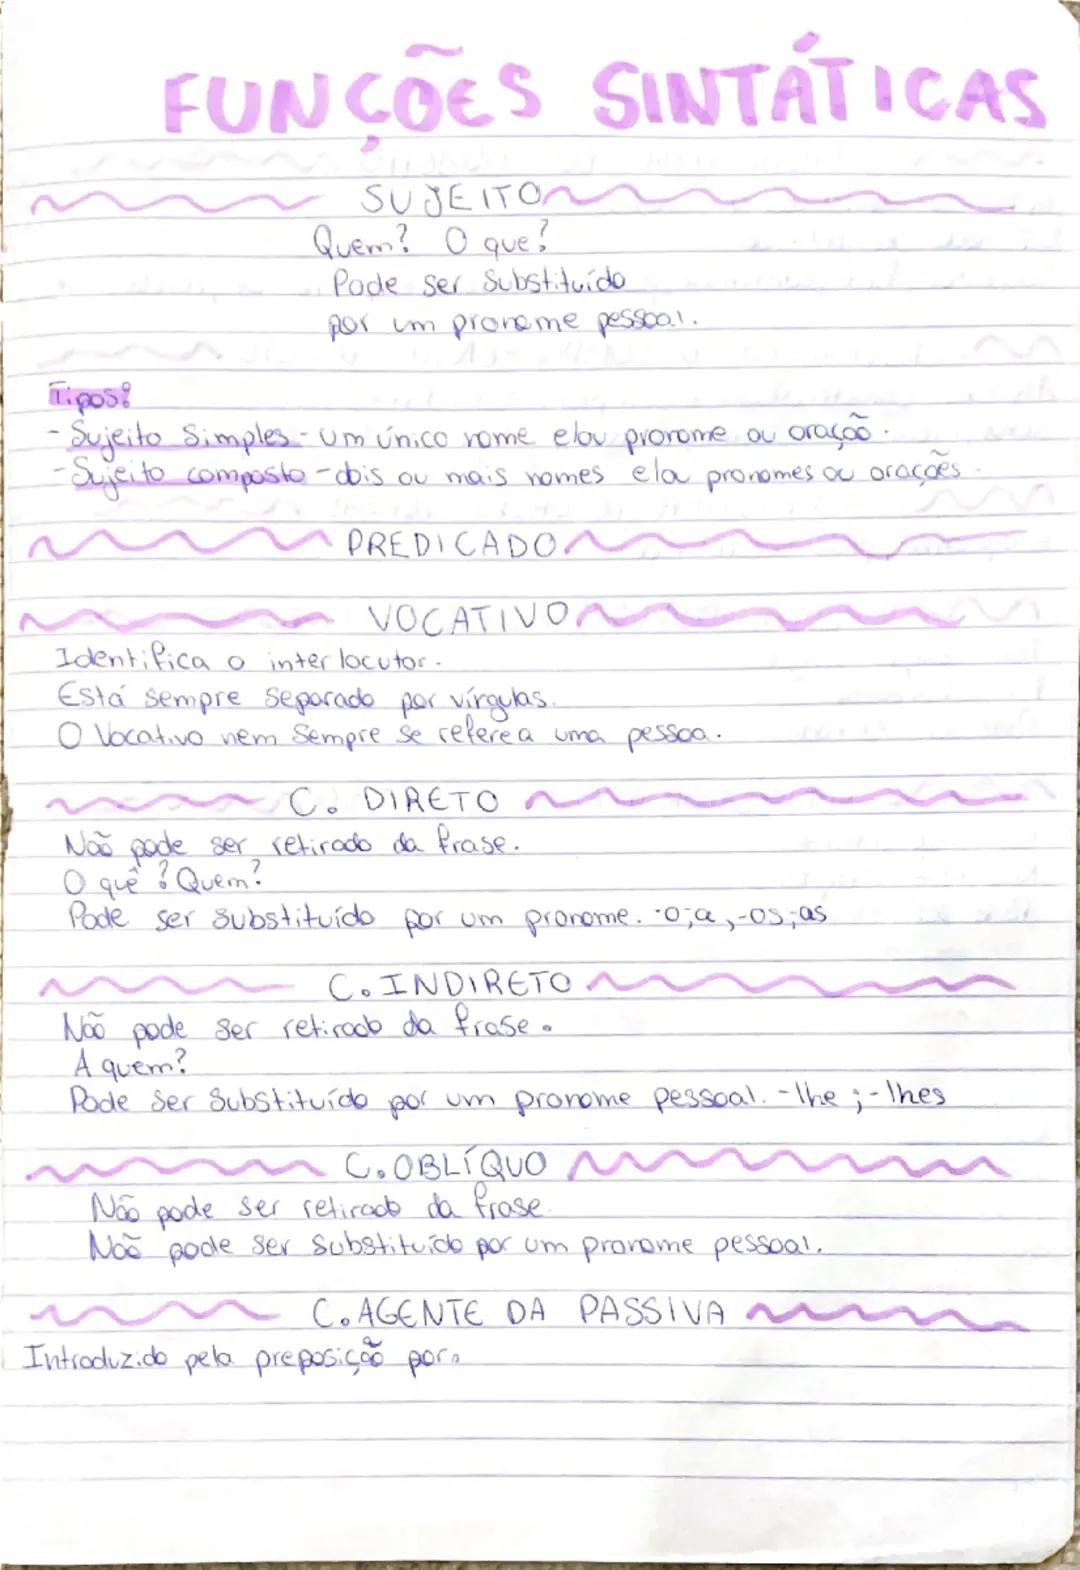 FUNÇÕES SINTÁTICAS
SUJEITO
Quem? O que?
Pode ser substituído
por um pronome pessoal.
Tipos:
- Sujeito simples - um único nome e/ou pronome ou oração.
- Sujeito composto - dois ou mais nomes e/a pronomes ou orações.
PREDICADO
VOCATIVO
Identifica o interlocutor.
Está sempre separado por vírgulas.
O Vocativo nem sempre se refere a uma pessoa.
C. DIRETO
Não pode ser retirado da frase.
O quê? Quem?
Pode ser substituído por um pronome. -o;a,-os;as
C. INDIRETO
Não pode ser retirado da frase.
A quem?
Pode ser substituído por um pronome pessoal. -lhe ; -lhes
C. OBLÍQUO
Não pode ser retirado da frase.
Não pode ser substituído por um pronome pessoal.
C. AGENTE DA PASSIVA
Introduzido pela preposição por.